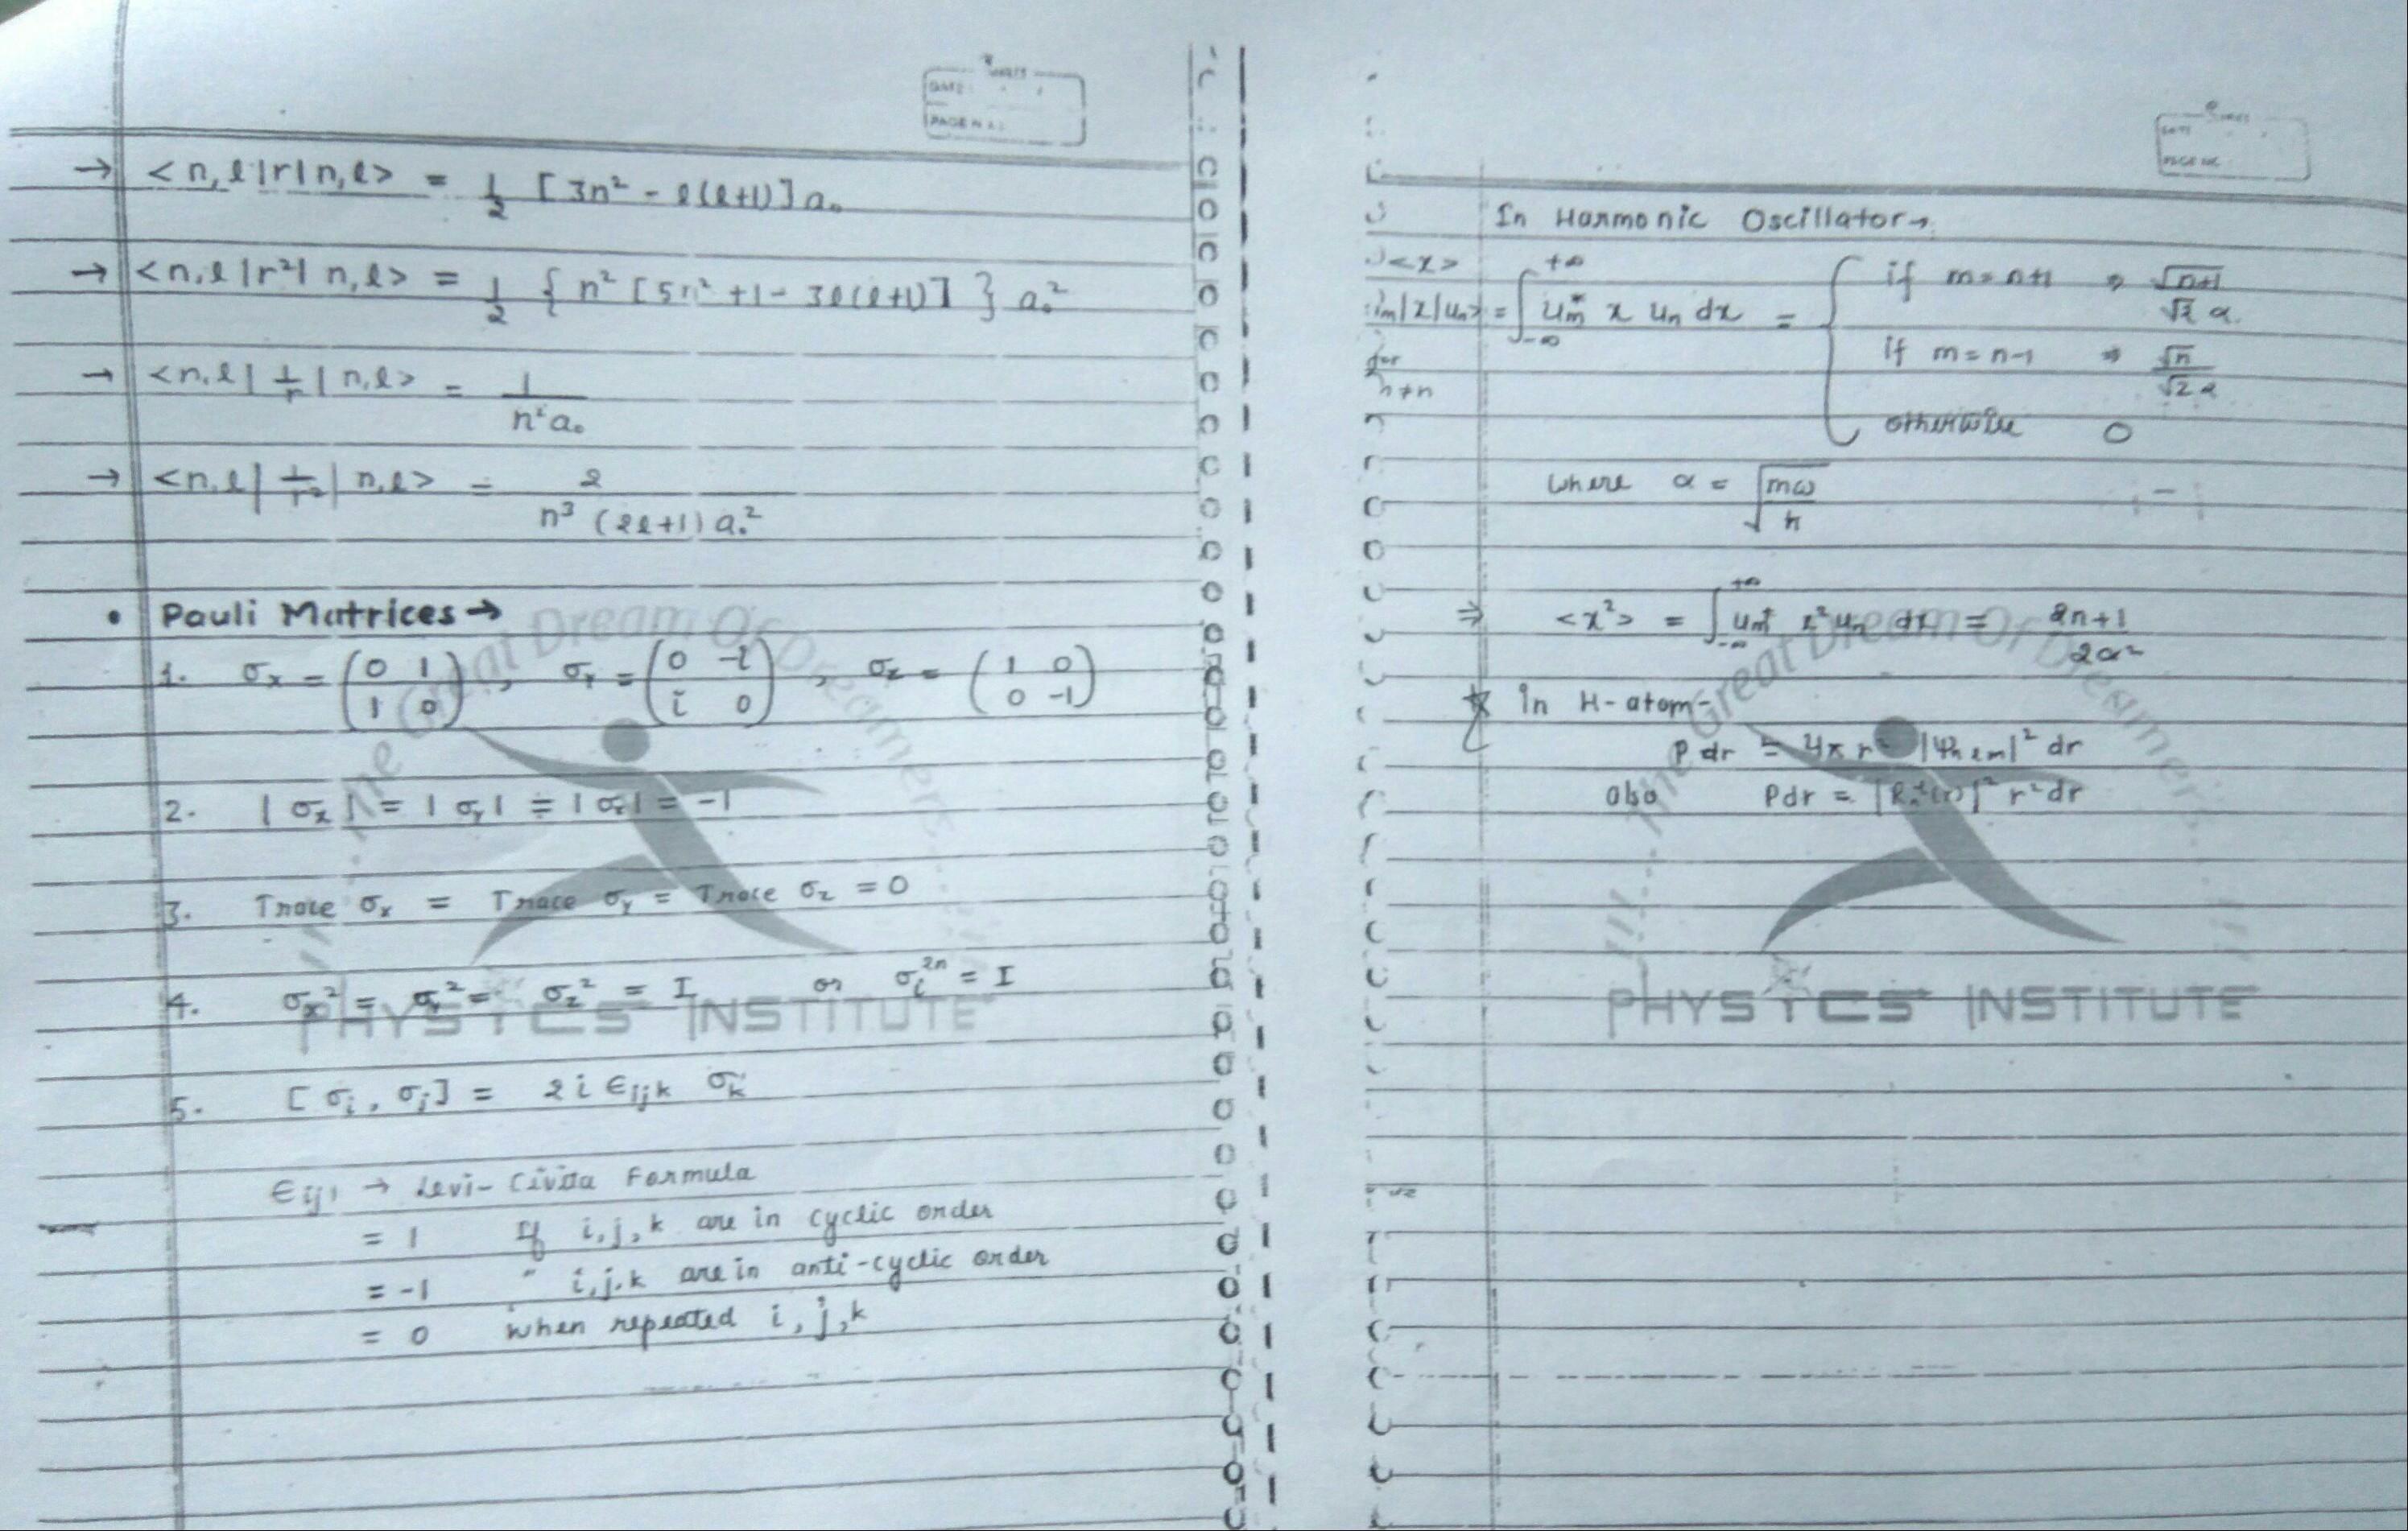 DATE:
PAGE NO.:
→ <n,l|r|n,l> = 1/2 [3n² - l(l+1)] a₀
→ <n,l|r²|n,l> = 1/2 { n² [5n² + 1 - 3l(l+1)] } a₀²
→ <n,l|1/r|n,l> = 1/(n²a₀)
→ <n,l|1/r²|n,l> = 2/(n³ (2l+1) a₀²)
• Pauli Matrices →
1. σx = (0 1; 1 0), σy = (0 -i; i 0), σz = (1 0; 0 -1)
2. |σx| = |σy| = |σz| = -1
3. Trace σx = Trace σy = Trace σz = 0
4. σx² = σy² = σz² = I or σi²ⁿ = I
5. [σi, σj] = 2i ϵijk σk
ϵij → Levi-Civita Formula
= 1 If i,j,k are in cyclic order
= -1 " i,j,k are in anti-cyclic order
= 0 when repeated i, j, k
...The Great Dream Of Dreamers...
PHYSICS INSTITUTE
DATE
PAGE NO.
In Harmonic Oscillator →
<x>
m|x|un> = ∫₋∞⁺∞ um* x un dx = { if m = n+1 ⇒ √(n+1)/(√2 α)
if m = n-1 ⇒ √n/(√2 α)
for
≠n
otherwise 0
where α = √(mω/ħ)
⇒ <x²> = ∫₋∞⁺∞ um* x² un dx = (2n+1)/(2α²)
☆ In H-atom-
P dr = 4π r² |ψnlm|² dr
also Pdr = |Rnl(r)|² r² dr
!!!...The Great Dream Of Dreamers...!!!
PHYSICS INSTITUTE